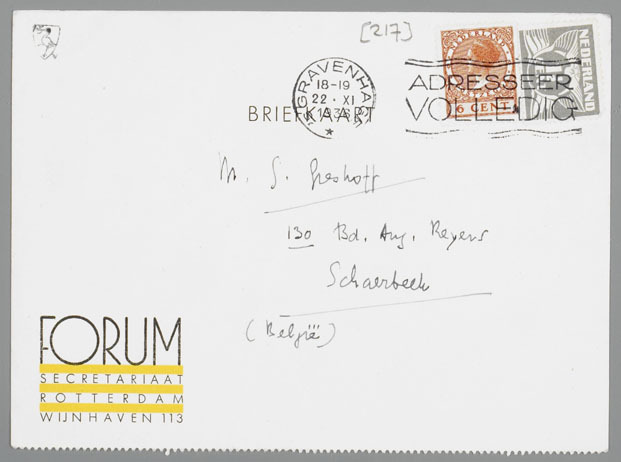 [217]
'S GRAVENHAGE
18-19
22 · XI
1935
BRIEFKAART
NEDERLAND
6 CENT
NEDERLAND
ADRESSEER
VOLLEDIG
M. J. Greshoff
130 Bd. Aug. Reyers
Schaerbeek
(België)
FORUM
SECRETARIAAT
ROTTERDAM
WIJNHAVEN 113